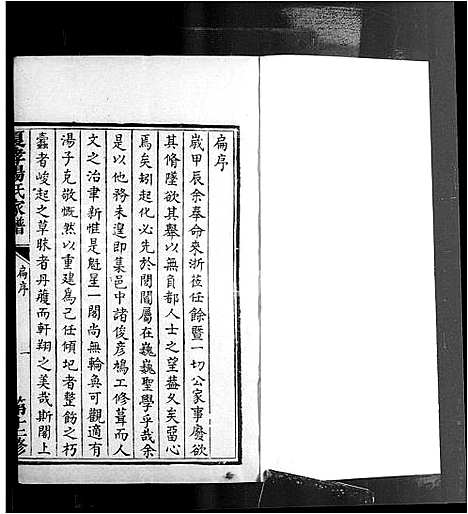 扁序
歲甲辰余奉命來浙莅任餘暨一切公家事廢欲
其脩墜欲其舉以無負都人士之望葢久矣畱心
焉矣矧起化必先於閭閻屬在巍巍聖學乎哉余
是以他務未遑即集邑中諸俊彥鳩工修葺而人
文之治聿新惟是魁星一閣尚無輪奐可觀適有
湯子克敬慨然以重建爲己任傾圮者整飭之朽
蠹者峻起之草昧者丹雘而軒翔之美哉斯閣上
夏孝湯氏家譜
扁序
一
第十二修